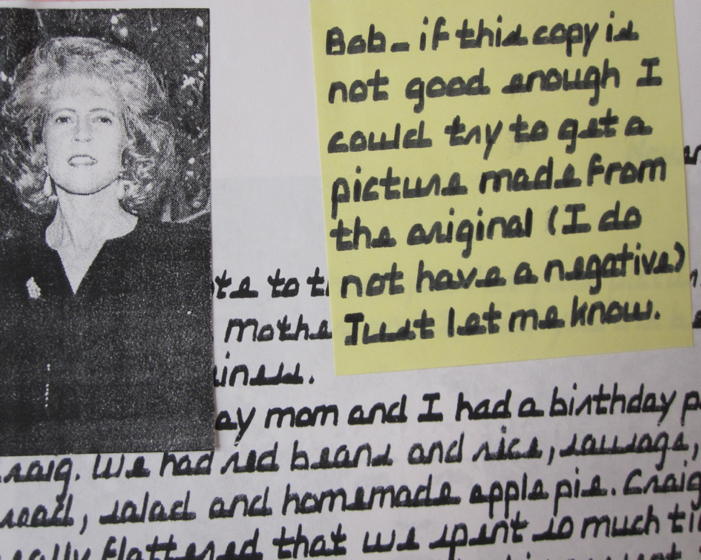 Bob - if this copy is
not good enough I
could try to get a
picture made from
the original (I do
not have a negative)
Just let me know.
te to t
mothe
iness.
ay mom and I had a birthday p
raig. We had red beans and rice, sausage,
read, salad and homemade apple pie. Craig
eally flattered that we spent so much ti